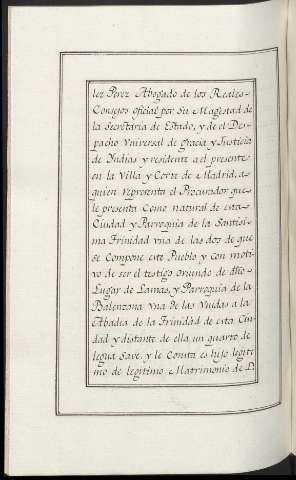 lez Perez Abogado de los Reales
Consejos oficial por Su Magestad de
la Secretaria de Estado, y de el Des-
pacho Universal de Gracia y Justicia
de Indias y residente a el presente
en la Villa y Corte de Madrid, a
quien representa el Procurador que
le presenta Como natural de esta
Ciudad y Parroquia de la Santisi-
ma Trinidad vna de las dos de que
se Compone este Pueblo y con moti-
vo de ser el testigo oriundo de dho
Lugar de Lamas, y Parroquia de la
Balenzana vna de las Vnidas a la
Abadia de la Trinidad de esta Ciu
dad y distante de ella un quarto de
legua Save, y le Consta es hijo legiti
mo de legitimo Matrimonio de D.